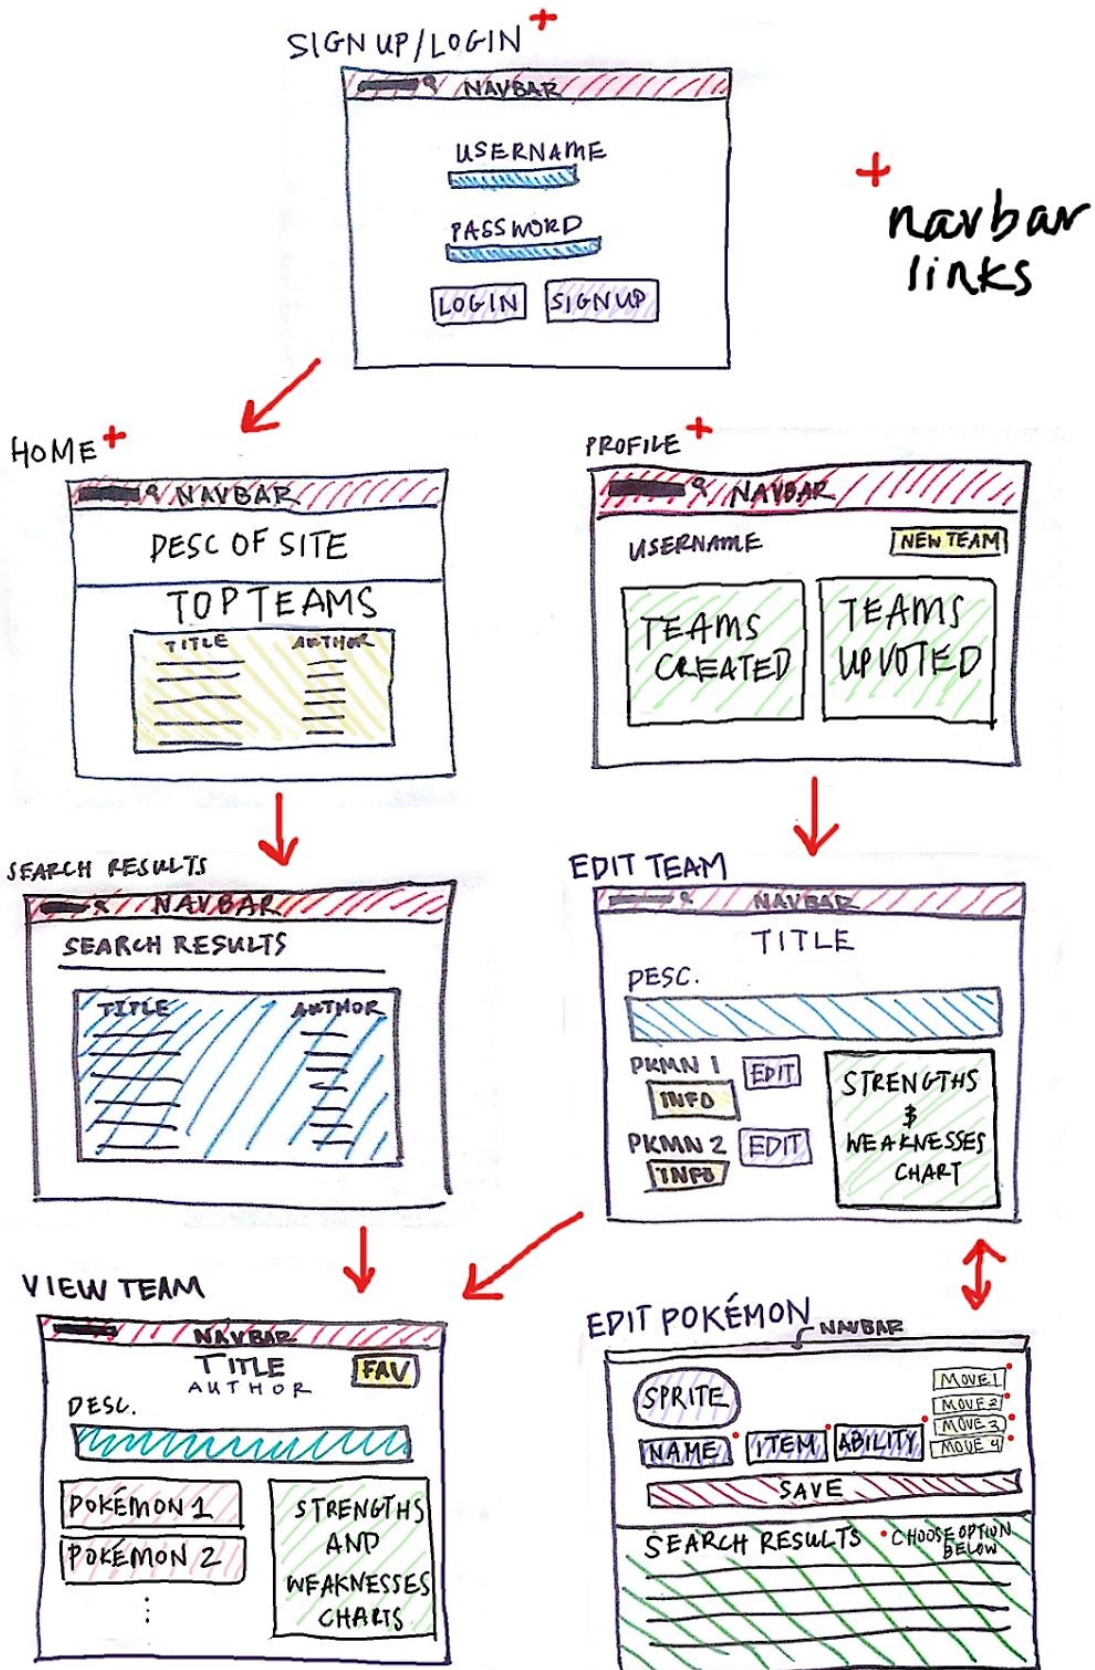 SIGN UP/LOGIN +
NAVBAR
USERNAME
PASSWORD
LOGIN
SIGNUP
+
navbar
links
HOME +
NAVBAR
DESC OF SITE
TOP TEAMS
TITLE AUTHOR
PROFILE +
NAVBAR
USERNAME
NEW TEAM
TEAMS
CREATED
TEAMS
UPVOTED
SEARCH RESULTS
NAVBAR
SEARCH RESULTS
TITLE AUTHOR
EDIT TEAM
NAVBAR
TITLE
DESC.
PKMN 1 EDIT
INFO
PKMN 2 EDIT
INFO
STRENGTHS
&
WEAKNESSES
CHART
VIEW TEAM
NAVBAR
TITLE
AUTHOR
FAV
DESC.
POKÉMON 1
POKÉMON 2
⋮
STRENGTHS
AND
WEAKNESSES
CHARTS
EDIT POKÉMON
NAVBAR
SPRITE
NAME
ITEM
ABILITY
MOVE 1
MOVE 2
MOVE 3
MOVE 4
SAVE
SEARCH RESULTS
• CHOOSE OPTION
BELOW